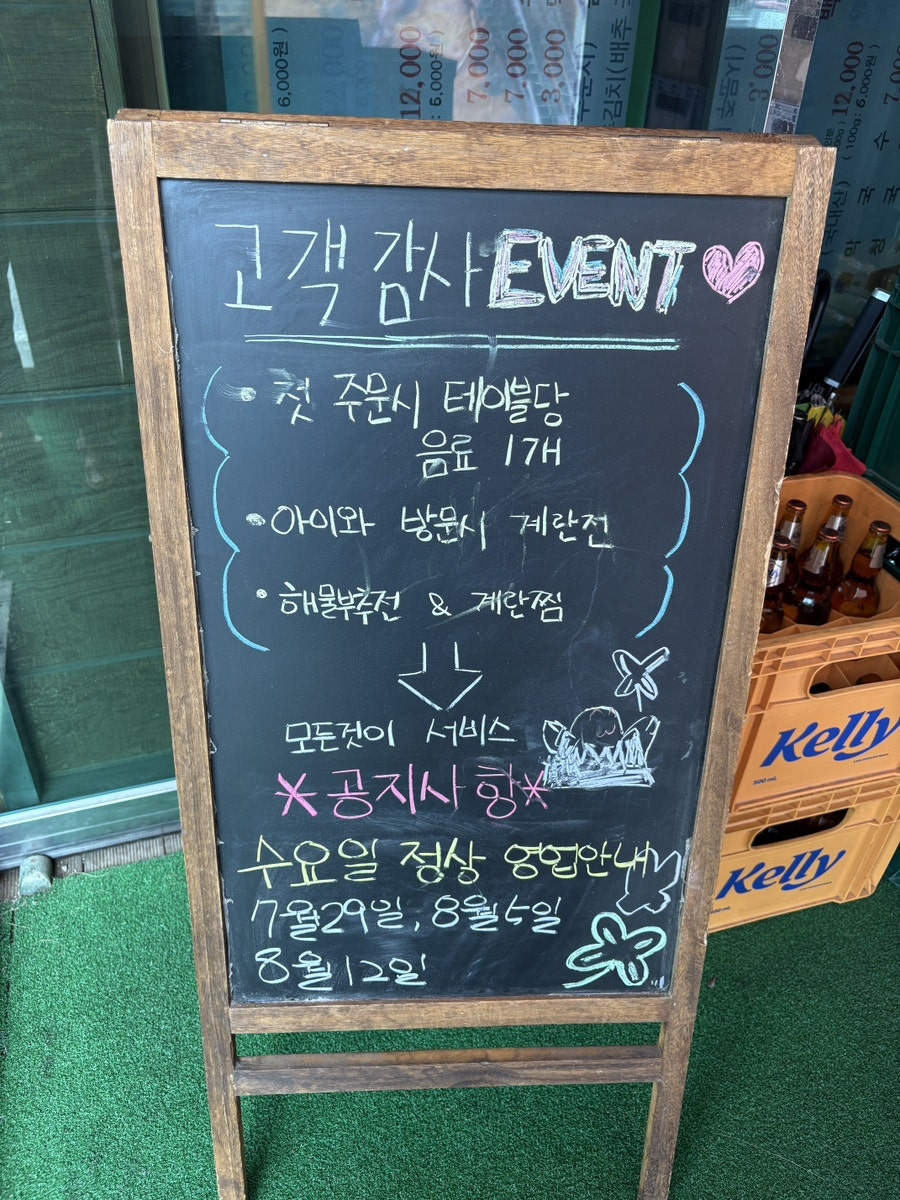 고객감사 EVENT
• 첫 주문시 테이블당
음료 1개
• 아이와 방문시 계란전
• 해물부추전 & 계란찜
모든것이 서비스
*공지사항*
수요일 정상 영업안내
7월29일, 8월5일
8월12일
6,000원)
12,000
: 6,000원)
7,000
7,000
3,000
김치(배추
3,000
12,000
(100g: 6,000원)
7,000
국내산)
국수
Kelly
500 mL
Kelly